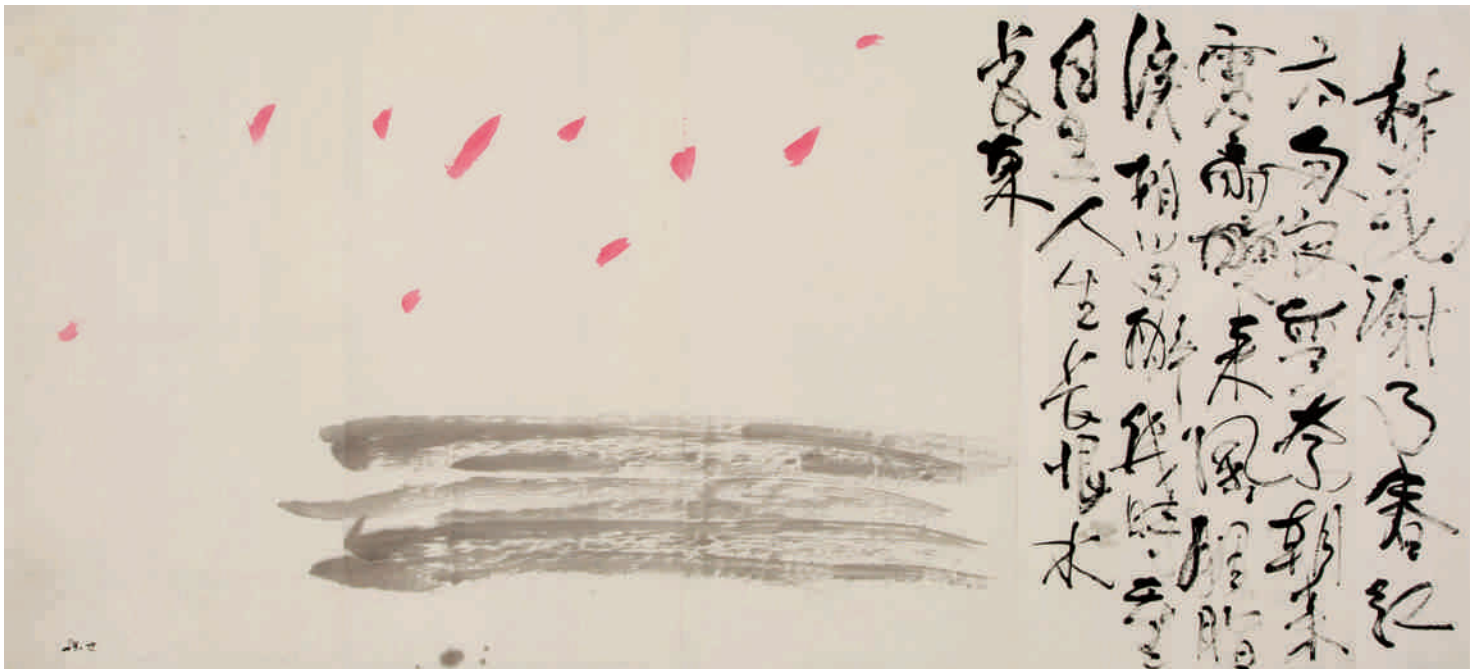 林花謝了春紅
太匆匆無奈朝來
寒雨晚來風胭脂
淚相留醉幾時重
自是人生長恨水
長東